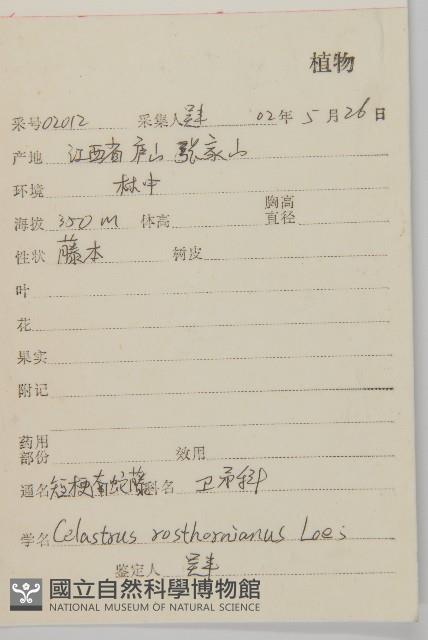 植物
采号02012 采集人 02年5月26日
产地 江西省庐山 张家山
环境 林中
海拔 350 m 体高 胸高直径
性状 藤本 树皮
叶
花
果实
附记
药用部份 效用
通名 短梗南蛇藤 科名 卫矛科
学名 Celastrus rosthornianus Loes
鉴定人
國立自然科學博物館
NATIONAL MUSEUM OF NATURAL SCIENCE